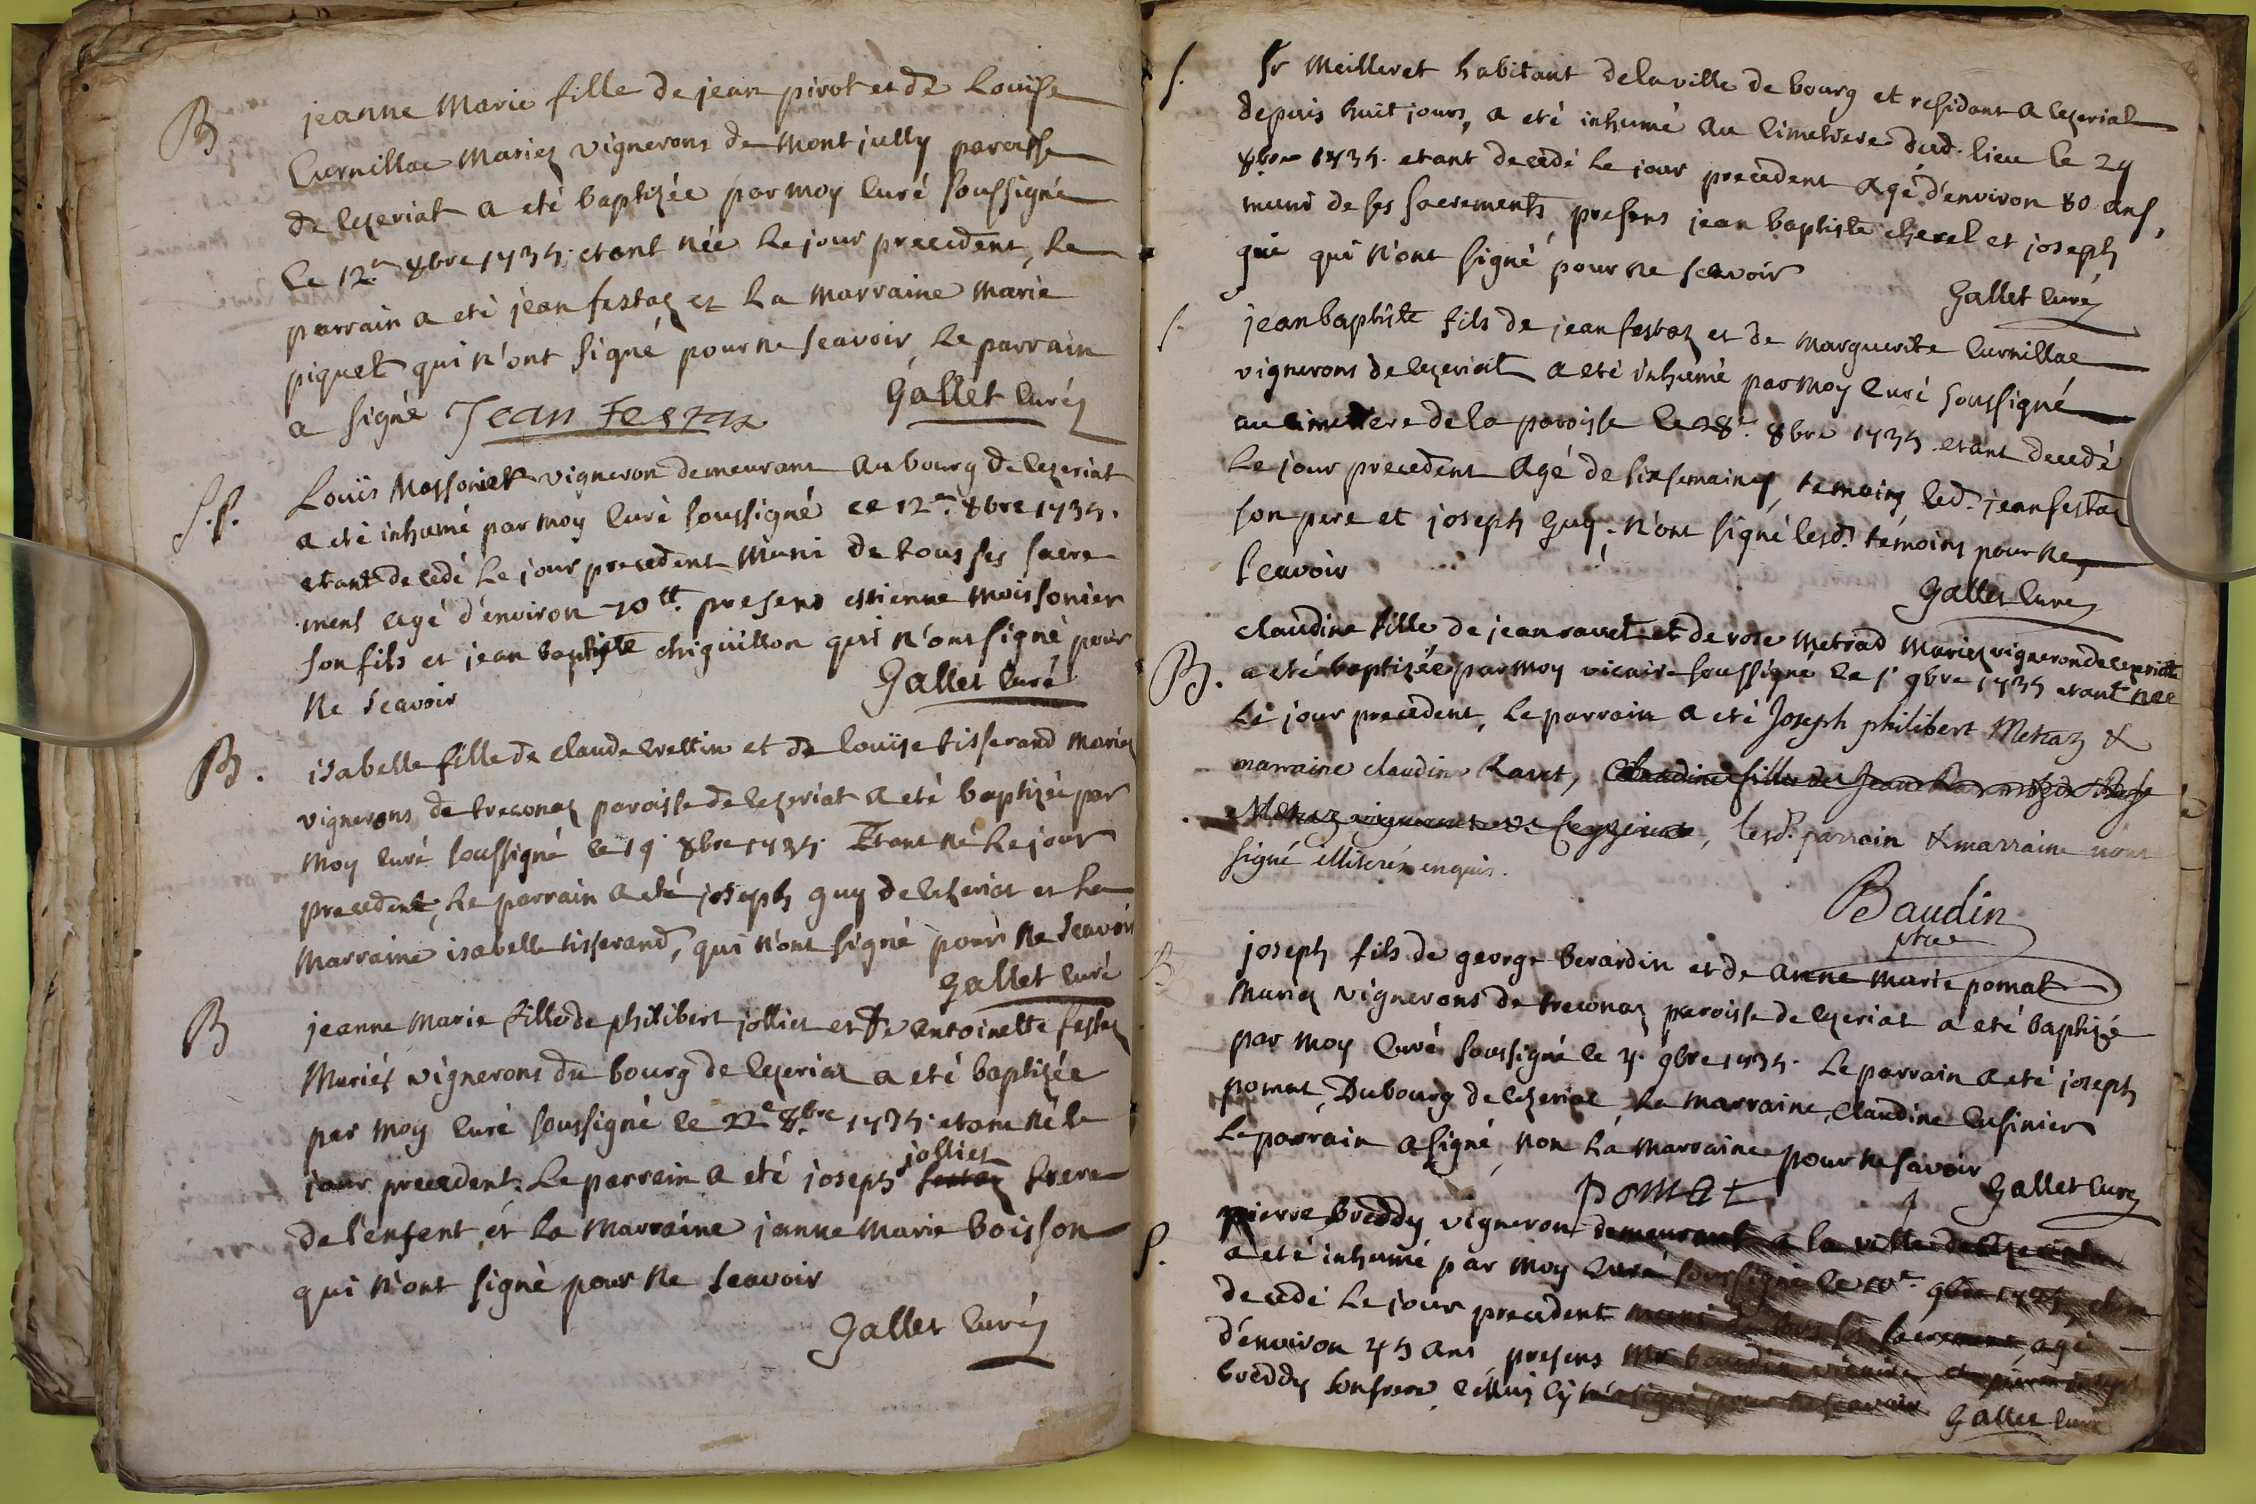 B
jeanne Marie fille de jean pirot et de Louise
Curnillac Mariez vignerons de Montjully paroisse
de Ceyzeriat a eté baptizée par moy curé soussigné
le 12e 8bre 1735. etant née le jour precedent, le
parrain a eté jean festaz et la marraine Marie
piquet qui n'ont signé pour ne scavoir, le parrain
a signé Jean Festaz Gallet curé
S.f.
Louis Massonier vigneron demeurant au bourg de Cezeriat
a eté inhumé par moy curé soussigné ce 12e 8bre 1735.
etant decedé le jour precedent muni de tous ses sacre
ment agé d'environ 70 tt. presens etienne moissonier
son fils et jean baptiste chiquillon qui n'ont signé pour
ne scavoir Gallet curé
B.
isabelle fille de claude Crettin et de louise tisserand Mariez
vignerons de treconaz paroisse de Cezeriat a eté baptizée par
moy curé soussigné le 19 8bre 1735. Etant né le jour
precedent, le parrain a eté joseph guy de Cezeriat et la
marraine isabelle tisserand, qui n'ont signé pour ne scavoir
Gallet curé
B
jeanne marie fille de philibert jollier et de antoinette festaz
Mariés vignerons du bourg de Cezeriaz a eté baptizée
par moy curé soussigné le 22e 8.bre 1735. etant né le
jour precedent. Le parrain a eté joseph jollier festaz frere
de l'enfent, et la marraine janne marie boisson
qui n'ont signé pour ne scavoir
Gallet curé
S.
Sr Meilleret habitant de la ville de bourg et residant a Cezeriat
depuis huit jours, a eté inhumé au cimetiere dud. lieu le 29
8bre 1735. etant decedé le jour precedent agé d'environ 80 ans,
muni de ses sacrements, presens jean baptiste cherel et joseph
guie qui n'ont signé pour ne scavoir
Gallet curé
S.
jean baptiste fils de jean festaz et de marguerite Curnillac
vignerons de Cezeriat a eté inhumé par moy curé soussigné
au cimetiere de la paroisse le 28e. 8bre 1735. etant decedé
le jour precedent agé de six semaines, temoins led. jean festaz
son pere et joseph Guy. n'ont signé lesd. témoins pour ne
scavoir
Gallet curé
B.
claudine fille de jean ravet et de rose Metrad Mariez vigneron de Cezeriat
a eté baptizée par moy vicaire soussigné le 1r 9bre 1735 etant née
le jour precedent, le parrain a eté Joseph philibert Metraz &
marraine claudine Ravet, Claudine fille de Jean
Metraz vignerons de Ceyzeriat, lesd. parrain & marraine n'ont
signé illiterés enquis.
Baudin
ptre
B
joseph fils de george berardin et de anne marie pomat
Mariez vignerons de treconaz paroisse de Cezeriat a eté baptizé
par moy curé soussigné le 4. 9bre 1735. Le parrain a eté joseph
pomat, Du bourg de Cezeriat la marraine Claudine Cusinier
Le parrain a signé, non la marraine pour ne savoir
Pomat Gallet curé
S.
pierre breddy vigneron demeurant a la ville de Cezeriat
a eté inhumé par moy curé soussigné le 10e. 9bre 1735, etant
decedé le jour precedent muni de tous ses sacremens agé
d'environ 45 ans presens Mr baudin vicaire et
breddy son frere, celluy cy n'a signé pour ne scavoir
Gallet curé